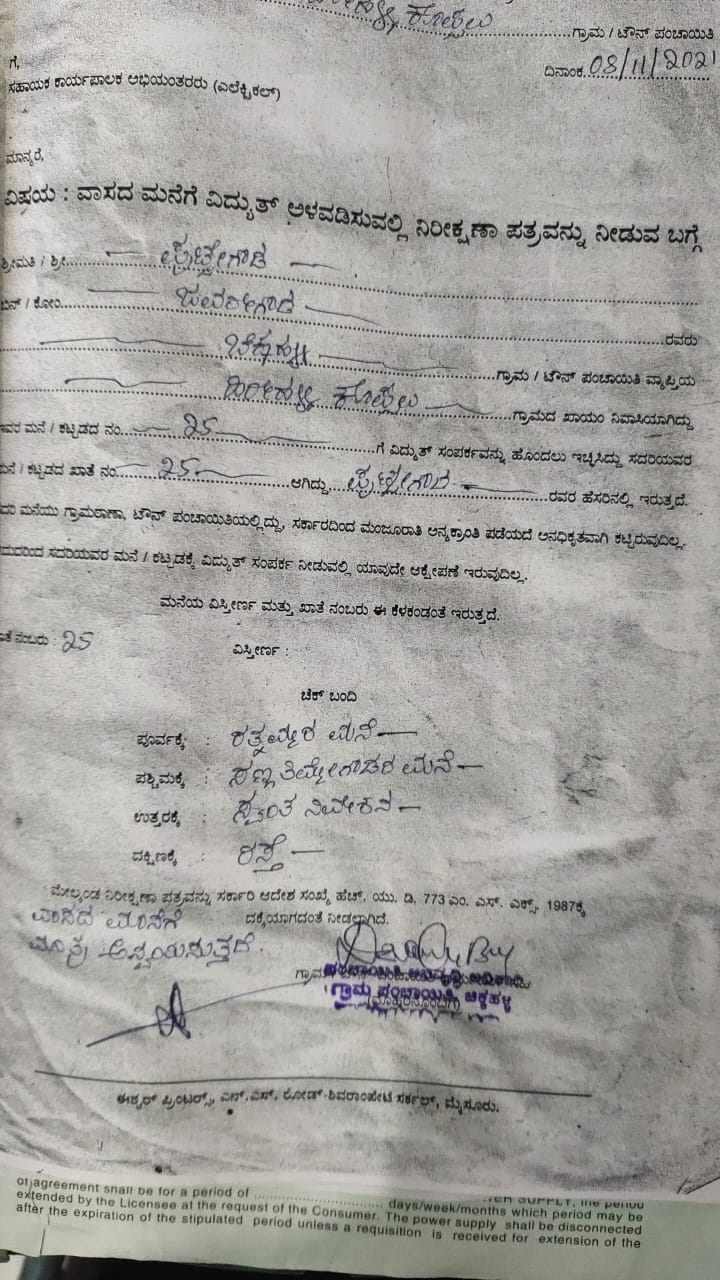 ಕೊಪ್ಪಲು ಗ್ರಾಮ / ಟೌನ್ ಪಂಚಾಯಿತಿ
ದಿನಾಂಕ. 08/11/2021
ಗೆ,
ಸಹಾಯಕ ಕಾರ್ಯಪಾಲಕ ಅಭಿಯಂತರರು (ಎಲೆಕ್ಟ್ರಿಕಲ್)
ಮಾನ್ಯರೆ,
ವಿಷಯ : ವಾಸದ ಮನೆಗೆ ವಿದ್ಯುತ್ ಅಳವಡಿಸುವಲ್ಲಿ ನಿರೀಕ್ಷಣಾ ಪತ್ರವನ್ನು ನೀಡುವ ಬಗ್ಗೆ
ಶ್ರೀಮತಿ / ಶ್ರೀ. ಪುಟ್ಟೇಗೌಡ
ಬಿನ್ / ಕೋಂ. ಜವರೇಗೌಡ ರವರು
ಚಿಕ್ಕಹಳ್ಳಿ ಗ್ರಾಮ / ಟೌನ್ ಪಂಚಾಯಿತಿ ವ್ಯಾಪ್ತಿಯ
ಹಿರೀಹಳ್ಳಿ ಕೊಪ್ಪಲು ಗ್ರಾಮದ ಖಾಯಂ ನಿವಾಸಿಯಾಗಿದ್ದು
ಇವರ ಮನೆ / ಕಟ್ಟಡದ ನಂ. 25 ಗೆ ವಿದ್ಯುತ್ ಸಂಪರ್ಕವನ್ನು ಹೊಂದಲು ಇಚ್ಛಿಸಿದ್ದು ಸದರಿಯವರ
ಮನೆ / ಕಟ್ಟಡದ ಖಾತೆ ನಂ. 25 ಆಗಿದ್ದು, ಪುಟ್ಟೇಗೌಡ ರವರ ಹೆಸರಿನಲ್ಲಿ ಇರುತ್ತದೆ.
ಮನೆಯು ಗ್ರಾಮಠಾಣಾ, ಟೌನ್ ಪಂಚಾಯಿತಿಯಲ್ಲಿದ್ದು, ಸರ್ಕಾರದಿಂದ ಮಂಜೂರಾತಿ ಅನ್ಯಕ್ರಾಂತಿ ಪಡೆಯದೆ ಅನಧಿಕೃತವಾಗಿ ಕಟ್ಟಿರುವುದಿಲ್ಲ.
ಸದರಿಯವರ ಮನೆ / ಕಟ್ಟಡಕ್ಕೆ ವಿದ್ಯುತ್ ಸಂಪರ್ಕ ನೀಡುವಲ್ಲಿ ಯಾವುದೇ ಆಕ್ಷೇಪಣೆ ಇರುವುದಿಲ್ಲ.
ಮನೆಯ ವಿಸ್ತೀರ್ಣ ಮತ್ತು ಖಾತೆ ನಂಬರು ಈ ಕೆಳಕಂಡಂತೆ ಇರುತ್ತದೆ.
ನಂಬರು : 25 ವಿಸ್ತೀರ್ಣ :
ಚೆಕ್ ಬಂದಿ
ಪೂರ್ವಕ್ಕೆ : ರತ್ನಮ್ಮರ ಮನೆ
ಪಶ್ಚಿಮಕ್ಕೆ : ಸಣ್ಣತಿಮ್ಮೇಗೌಡರ ಮನೆ
ಉತ್ತರಕ್ಕೆ : ಸ್ವಂತ ನಿವೇಶನ
ದಕ್ಷಿಣಕ್ಕೆ : ರಸ್ತೆ
ಮೇಲ್ಕಂಡ ನಿರೀಕ್ಷಣಾ ಪತ್ರವನ್ನು ಸರ್ಕಾರಿ ಆದೇಶ ಸಂಖ್ಯೆ ಹೆಚ್. ಯು. ಡಿ. 773 ಎಂ. ಎಸ್. ಎಕ್ಸ್. 1987ಕ್ಕೆ
ದಕ್ಕೆಯಾಗದಂತೆ ನೀಡಲಾಗಿದೆ.
ವಾಸದ ಮನೆಗೆ
ಮಾತ್ರ ಅನ್ವಯಿಸುತ್ತದೆ.
ಪಂಚಾಯಿತಿ ಅಭಿವೃದ್ಧಿ ಅಧಿಕಾರಿ
ಗ್ರಾಮ ಪಂಚಾಯಿತಿ ಚಿಕ್ಕಹಳ್ಳಿ
ಈಶ್ವರ್ ಪ್ರಿಂಟರ್ಸ್, ಎನ್.ಎಸ್. ರೋಡ್-ಶಿವರಾಂಪೇಟೆ ಸರ್ಕಲ್, ಮೈಸೂರು.
SUPPLY, the period
of agreement shall be for a period of days/week/months which period may be
extended by the Licensee at the request of the Consumer. The power supply shall be disconnected
after the expiration of the stipulated period unless a requisition is received for extension of the